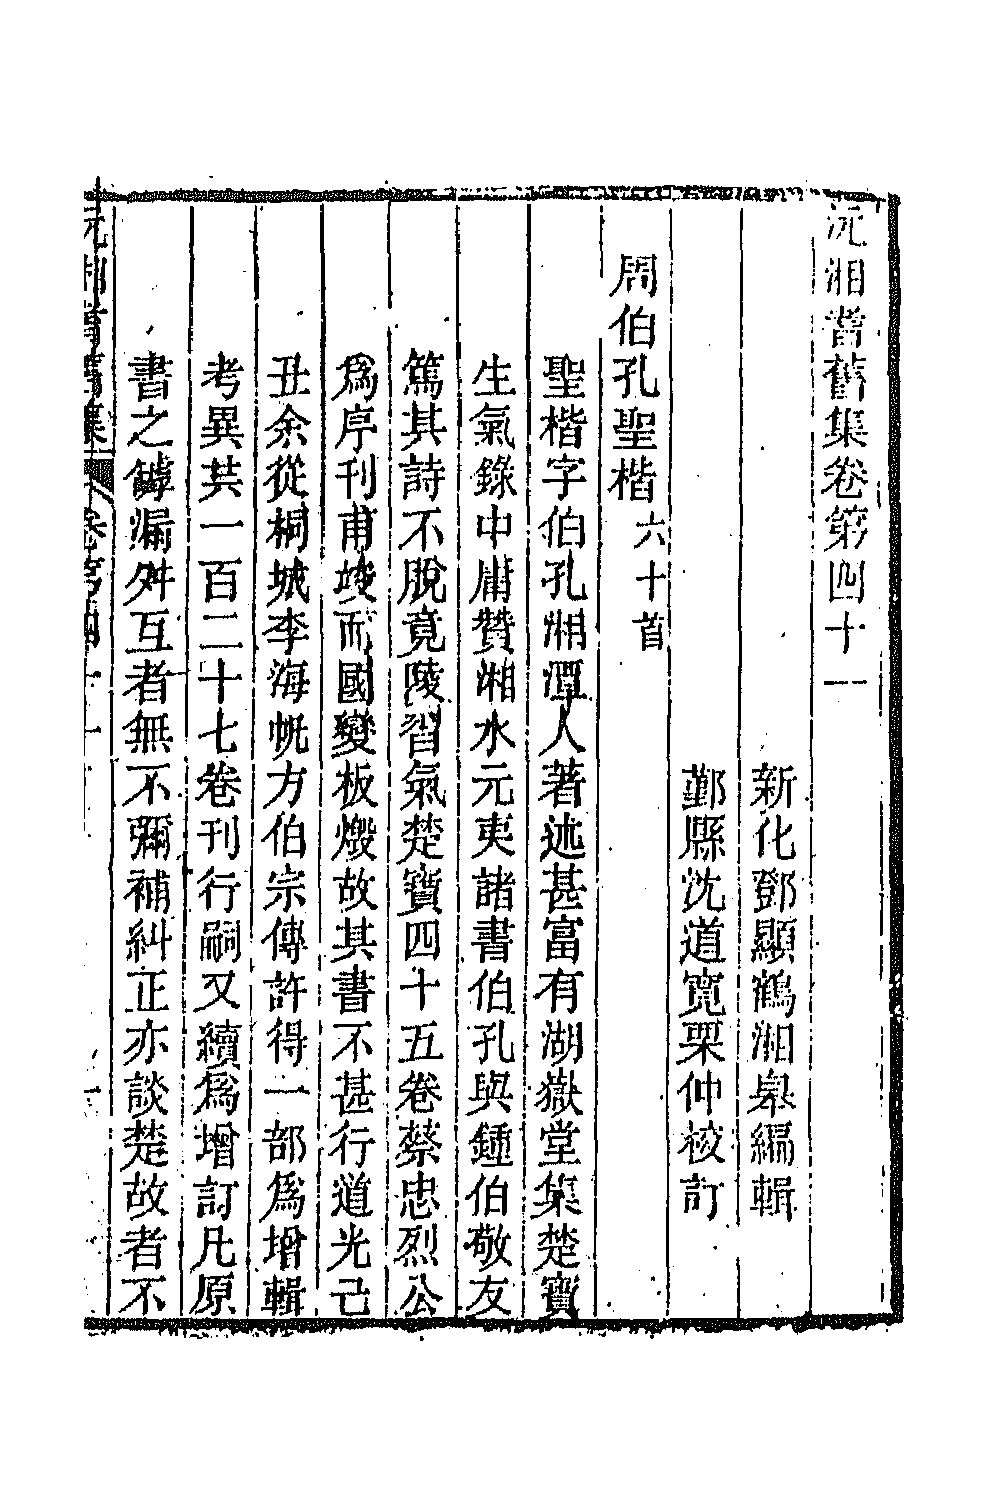 沅湘耆舊集卷第四十一
新化鄧顯鶴湘皋編輯
鄞縣沈道寬栗仲校訂
周伯孔聖楷六十首
聖楷字伯孔湘潭人著述甚富有湖嶽堂集楚寶
生氣錄中庸贊湘水元夷諸書伯孔與鍾伯敬友
篤其詩不脫竟陵習氣楚寶四十五卷蔡忠烈公
爲序刊甫竣而國變板燬故其書不甚行道光己
丑余從桐城李海帆方伯宗傳許得一部爲增輯
考異共一百二十七卷刊行嗣又續爲增訂凡原
書之罅漏舛互者無不彌補糾正亦談楚故者不